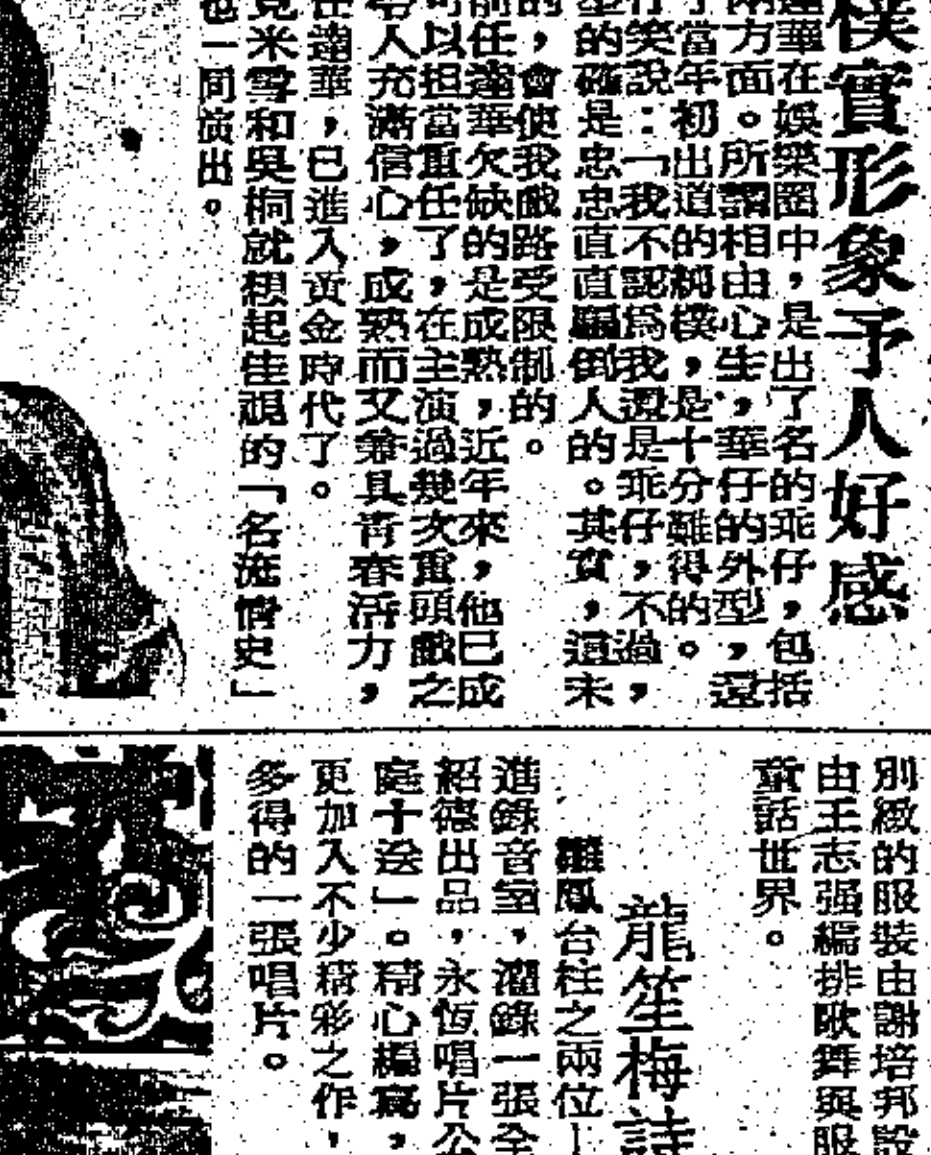 樸實形象予人好感
達華在娛樂圈中，是出了名的乖仔，包括
兩方面。所謂相由心生，華仔的外型，還
了當年初出道的純樸，是十分難得的。
仔笑說：「我不認爲我還是乖仔，不過，
型的確是忠忠直直騙倒人的。其實，這未
的，會使我戲路受限制的。
前任達華欠缺的是成熟，近年來，他已成
可以担當重任了，在主演過幾次重頭戲之
令人充滿信心，成熟而又兼具青春活力，
任達華，已進入黃金時代了。
見米雪和吳桐就想起佳視的「名流情史」
也一同演出。
別緻的服裝由謝培邦設
由王志强編排歌舞與服
童話世界。
龍笙梅詩
雛鳳台柱之兩位
進錄音室，灌錄一張全
紹德出品，永恆唱片公
庭十送」。精心編寫，
更加入不少精彩之作，
多得的一張唱片。